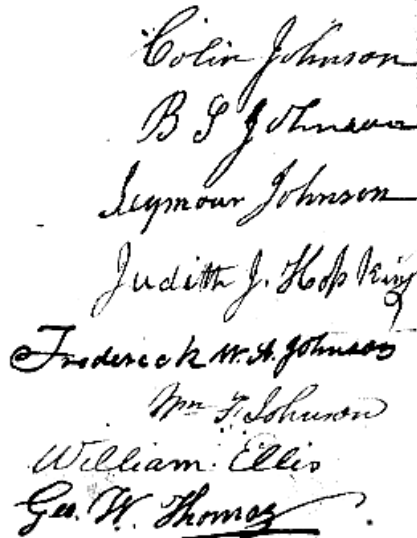 Colin Johnson
B S Johnson
Seymour Johnson
Judith J. Hopkins
Frederick W. A. Johnson
Wm F. Johnson
William Ellis
Geo. W. Thomas